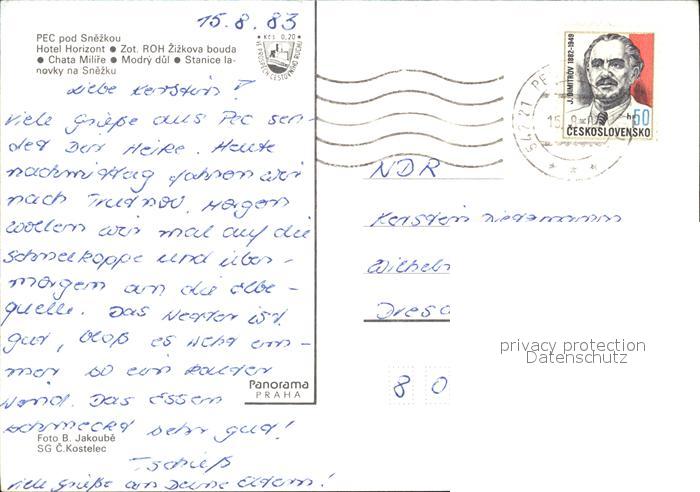 15.8.83
PEC pod Sněžkou
Hotel Horizont ● Zot. ROH Žižkova bouda
● Chata Milíře ● Modrý důl ● Stanice la-
novky na Sněžku
Kčs 0,20
VE PROSPĚCH CESTOVNÍHO RUCHU
Liebe Kerstin!
Viele Grüße aus Pec sen-
det Dir Heike. Heute
nachmittag fahren wir
nach Trutnov. Morgen
wollen wir mal auf die
Schneekoppe und über-
morgen an die Elbe-
quelle. Das Wetter ist
gut, bloß es weht im-
mer so ein kalter
Wind. Das Essen
schmeckt sehr gut!
Tschüß
Viele Grüße an Deine Eltern!
Foto B. Jakoubě
SG Č.Kostelec
Panorama
PRAHA
J. DIMITROV 1882-1949
50
ČESKOSLOVENSKO
542 21 PE
NDR
Kerstin
Wilhelm
Dresd
8 0
privacy protection
Datenschutz